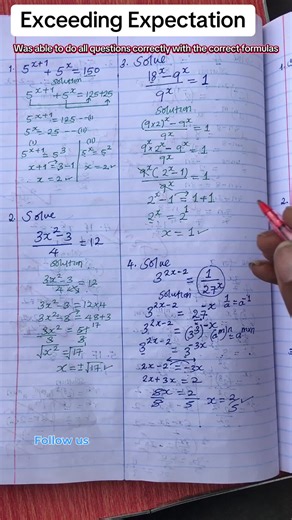 Exceeding Expectation
Was able to do all questions correctly with the correct formulas
1. 5^(x+1) + 5^x = 150
Solution
5^(x+1) + 5^x = 125+25
5^(x+1) = 125 --(i)
5^x = 25 --(ii)
(i)
5^(x+1) = 5^3
x+1 = 3-1
x = 2 ✓
(ii)
5^x = 5^2
x = 2 ✓
2. Solve
3x²-3 / 4 = 12
Solution
3x²-3 / 4 = 12
3x²-3 = 12×4
3x²-3 = 48+3
3x²/3 = 51/3 17
√x² = √17
x = ±√17 ✓
3. Solve
18^x - 9^x / 9^x = 1
Solution
(9×2)^x - 9^x / 9^x = 1
9^x 2^x - 9^x / 9^x = 1
9^x (2^x - 1) / 9^x = 1
2^x - 1 = 1+1
2^x = 2^1
x = 1 ✓
4. Solve
3^(2x-2) = 1/27^x
Solution
3^(2x-2) = 27^(-x)
1/a = a^(-1)
3^(2x-2) = (3^3)^(-x)
(a^m)^n = a^(mn)
3^(2x-2) = 3^(-3x)
2x-2 = -3x
2x+3x = 2
5x/5 = 2/5
x = 2/5 ✓
Follow us